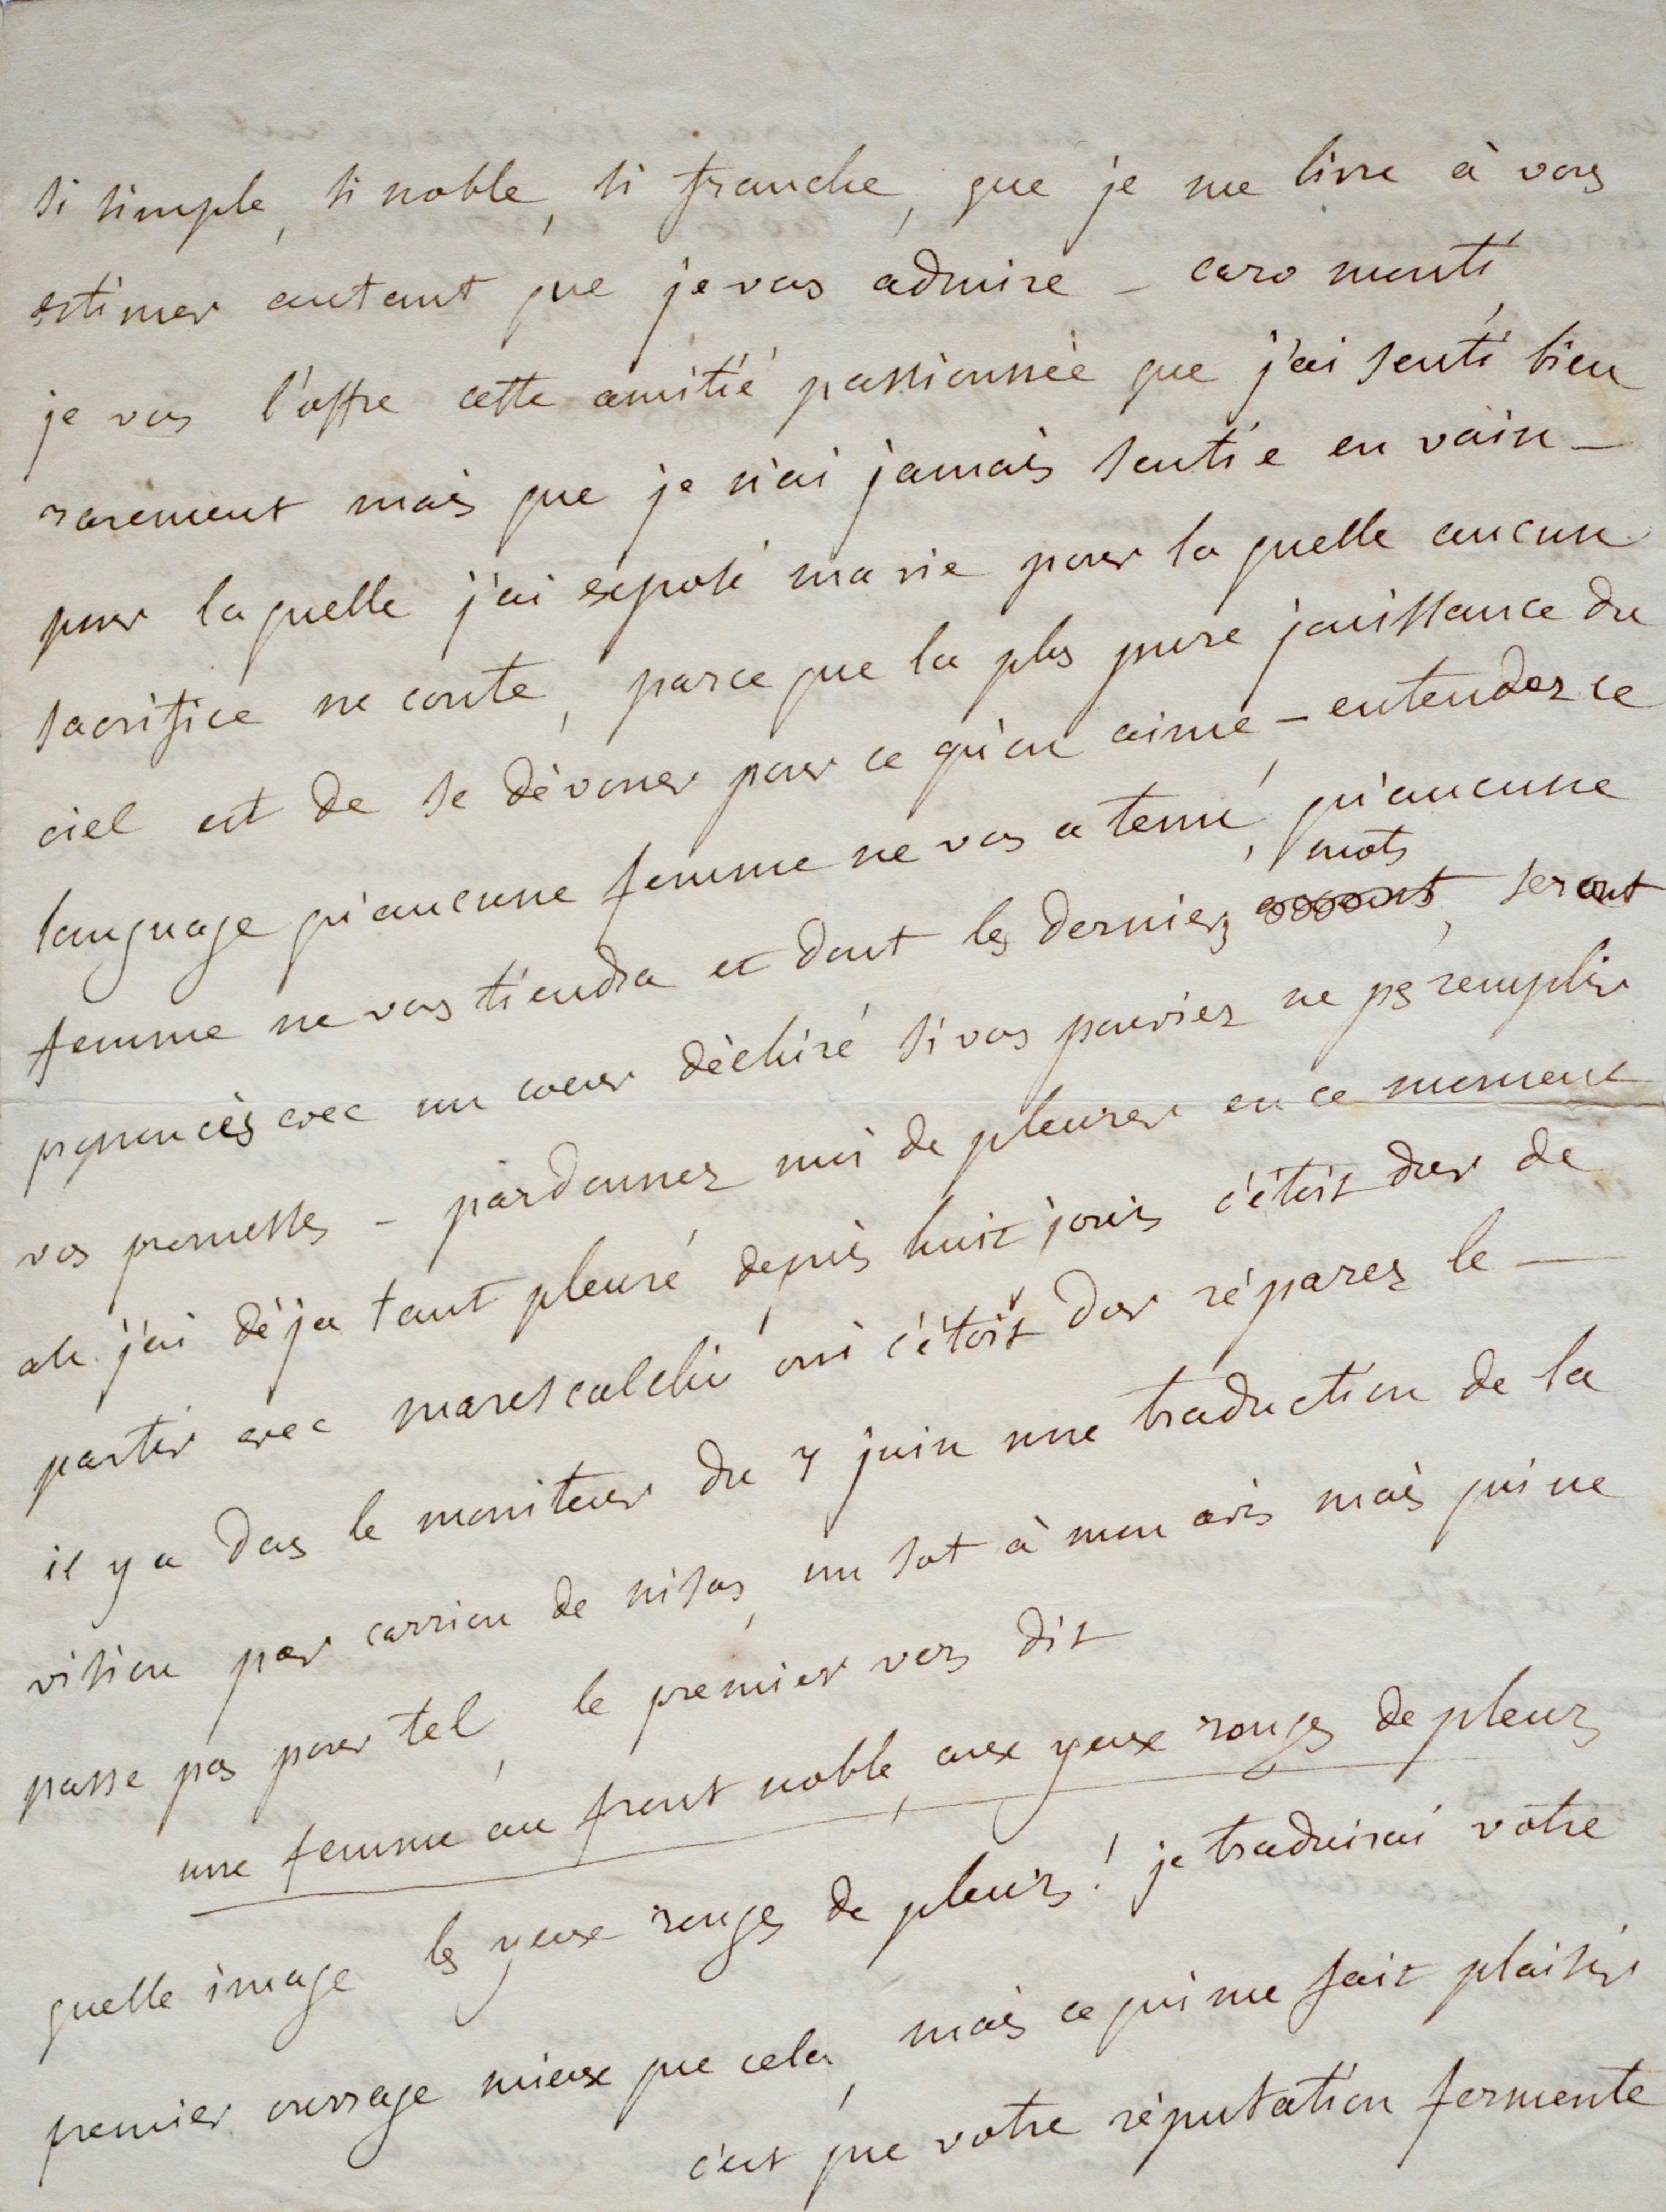 si simple, si noble, si franche, que je me livre à vous
estimer autant que je vous admire – caro monti,
je vous l'offre cette amitié passionnée que j'ai senti bien
rarement mais que je n'ai jamais sentie en vain –
pour laquelle j'ai exposé ma vie pour la quelle aucun
sacrifice ne coute, parce que la plus pure jouissance du
ciel est de se dévouer pour ce qu'on aime – entendez ce
language qu'aucune femme ne vous a tenu, qu'aucune
femme ne vous tiendra et dont les derniers mots, seront
prononcés avec un coeur déchiré si vous pouviez ne pas remplir
vos promesses – pardonnez moi de pleurer en ce moment
ah j'ai déja tant pleuré depuis huit jours c'étoit dur de
partir avec marescalchi oui c'étoit dur réparez le –
il y a dans le moniteur du 7 juin une traduction de la
vision par carrion de nisas, un sot à mon avis mais qui ne
passe pas pour tel, le premier vers dit
une femme au front noble, aux yeux rouges de pleurs
quelle image les yeux rouges de pleurs! je traduirai votre
premier ouvrage mieux que cela, mais ce qui me fait plaisir
c'est que votre réputation fermente